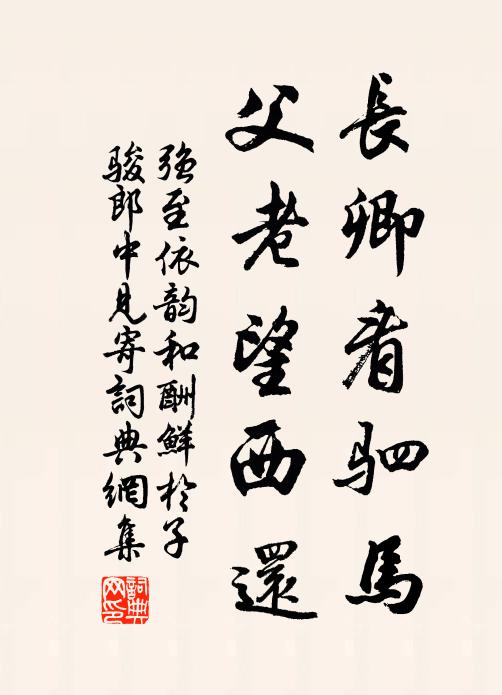 長卿看駟馬
父老望西還
强至依韵和酬鮮於子
駿郎中見寄詞典網集
詞典網印